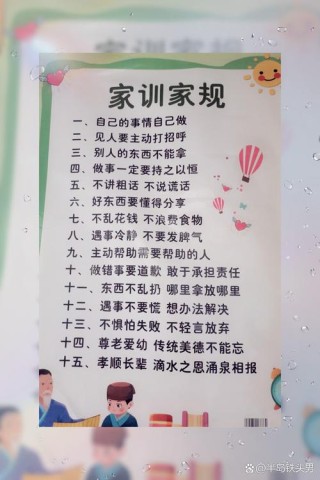 家训家规
一、自己的事情自己做
二、见人要主动打招呼
三、别人的东西不能拿
四、做事一定要持之以恒
五、不讲粗话 不说谎话
六、好东西要懂得分享
七、不乱花钱 不浪费食物
八、遇事冷静 不要发脾气
九、主动帮助需要帮助的人
十、做错事要道歉 敢于承担责任
十一、东西不乱扔 哪里拿放哪里
十二、遇事不要慌 想办法解决
十三、不惧怕失败 不轻言放弃
十四、尊老爱幼 传统美德不能忘
十五、孝顺长辈 滴水之恩涌泉相报
@半岛铁头男